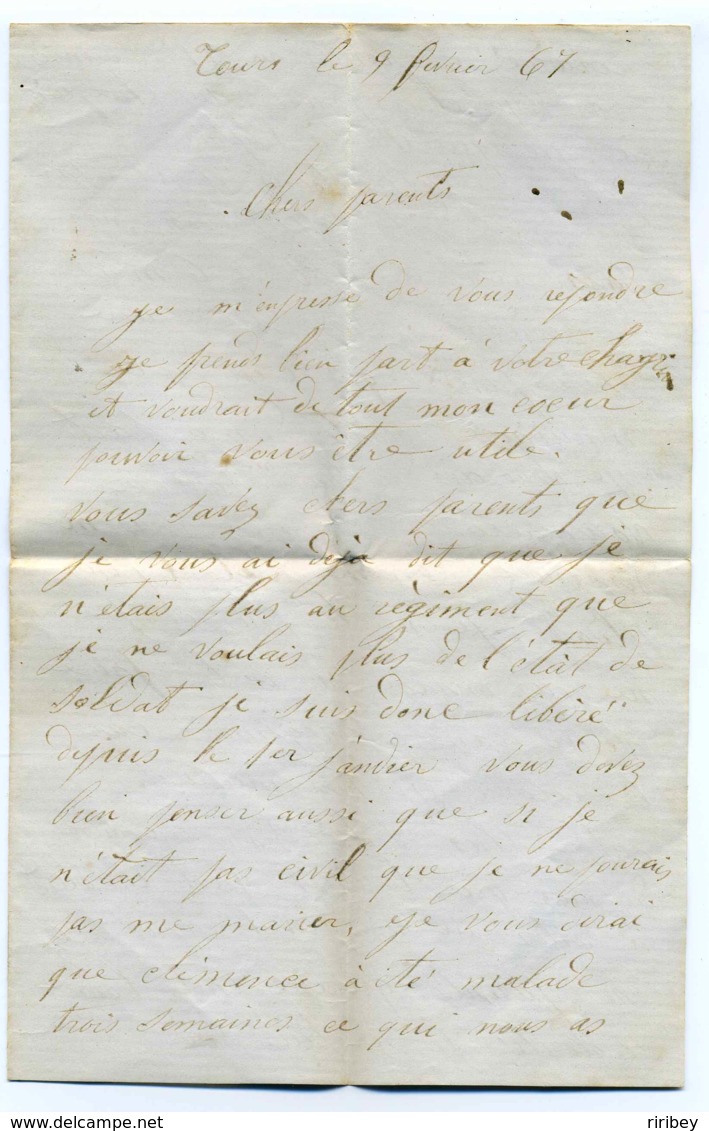 Tours le 9 fevrier 67
Chers parents
je m'enpresse de vous repondre
je prends bien part à votre chagrin
et voudrait de tout mon coeur
pouvoir vous être utile.
vous savez chers parents que
je vous ai deja dit que je
n'etais plus au règiment que
je ne voulais plus de l'état de
soldat je suis donc libéré
depuis le 1er janvier vous devez
bien penser aussi que si je
n'était pas civil que je ne pourais
pas me marier, je vous dirai
que clémence à été malade
trois semaines ce qui nous as
riribey